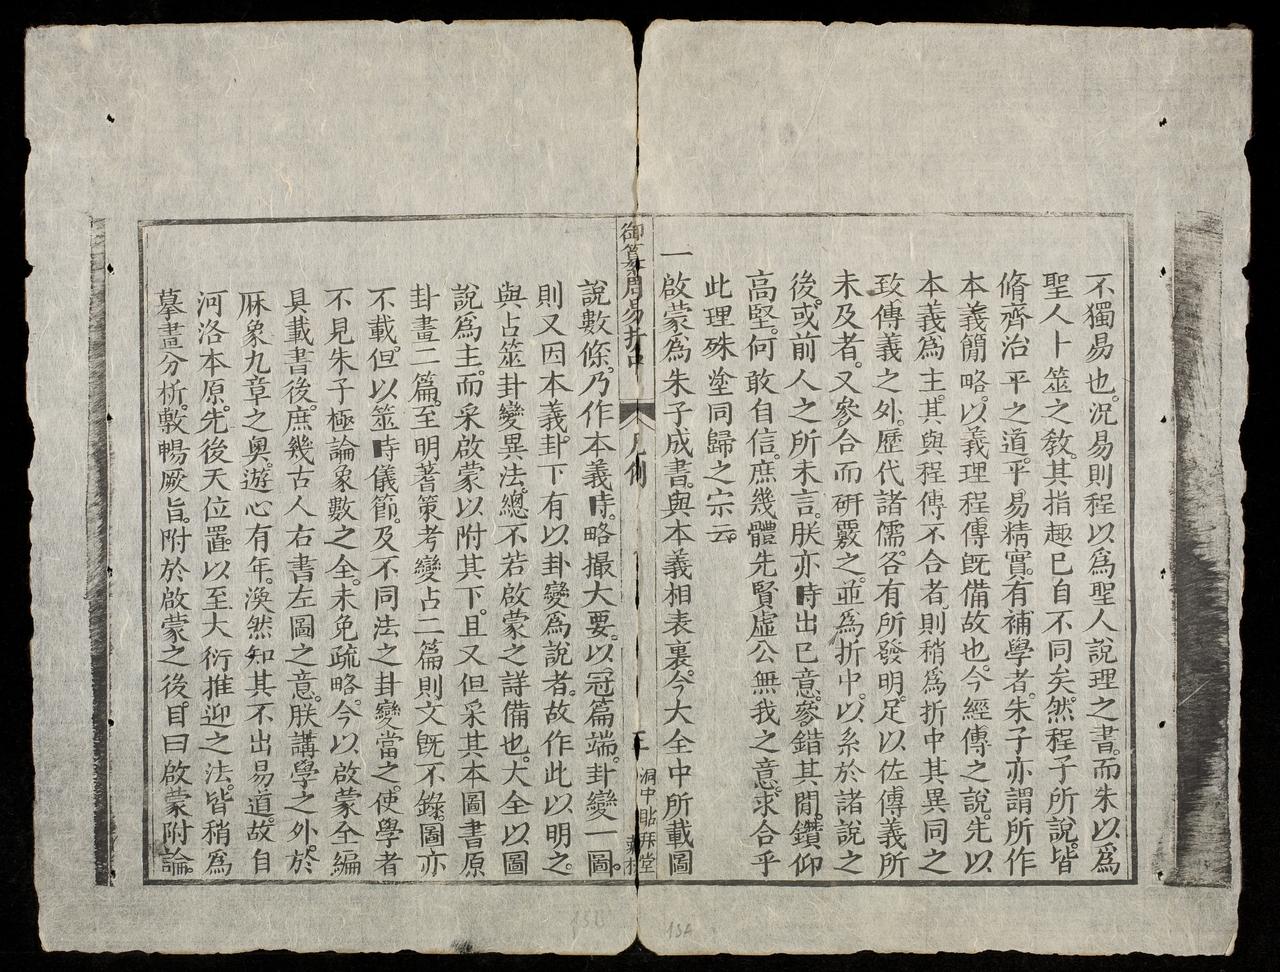 不獨易也。況易則程以爲聖人說理之書。而朱以爲
聖人卜筮之敎。其指趣已自不同矣。然程子所說。皆
脩齊治平之道。平易精實。有補學者。朱子亦謂所作
本義簡略。以義理程傳旣備故也。今經傳之說。先以
本義爲主。其與程傳不合者。則稍爲折中其異同之
致。傳義之外。歷代諸儒。各有所發明。足以佐傳義所
未及者。又參合而硏覈之。並爲折中。以系於諸說之
後。或前人之所未言。朕亦時出已意。參錯其閒。鑽仰
高堅。何敢自信。庶幾體先賢虛公無我之意。求合乎
此理殊塗同歸之宗云。
一啟蒙爲朱子成書。與本義相表裏。今大全中所載圖
御纂周易折中
凡例
說數條。乃作本義時。略撮大要。以冠篇端。卦變一圖。
則又因本義卦下有以卦變爲說者。故作此以明之。
與占筮卦變異法。總不若啟蒙之詳備也。大全以圖
說爲主。而采啟蒙以附其下。且又但采其本圖書原
卦畫二篇。至明蓍策考變占二篇則文旣不錄。圖亦
不載。但以筮時儀節。及不同法之卦變當之。使學者
不見朱子極論象數之全。未免疏略。今以啟蒙全編
具載書後。庶幾古人右書左圖之意。朕講學之外。於
厤象九章之奧。遊心有年。渙然知其不出易道。故自
河洛本原。先後天位置。以至大衍推迎之法。皆稍爲
摹畫分析。敷暢厥旨。附於啟蒙之後。目曰啟蒙附論。
15B
15A